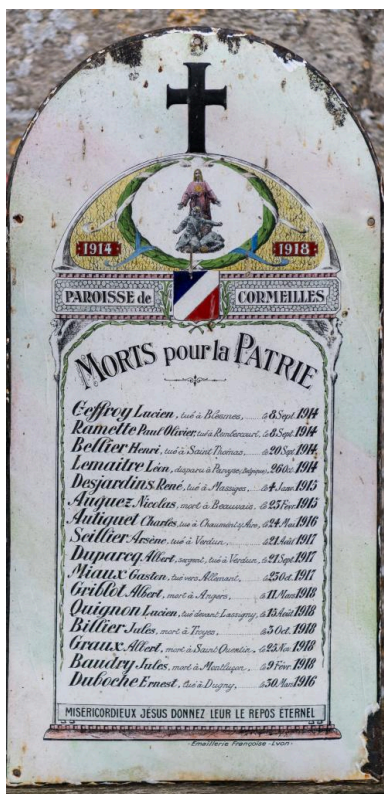 1914
1918
PAROISSE de CORMEILLES
MORTS pour la PATRIE
Geffroy Lucien, tué à Blesmes, le 8 Sept. 1914
Ramette Paul Olivier, tué à Rembercourt, le 8 Sept. 1914
Bellier Henri, tué à Saint Thomas, le 20 Sept. 1914
Lemaitre Léon, disparu à Pervyse, (Belgique), 26 Oct. 1914
Desjardins René, tué à Massiges, le 4 Janv. 1915
Auguez Nicolas, mort à Beauvais, le 25 Févr. 1915
Antiquet Charles, tué à Chaumont s/Aire, le 24 Mai 1916
Seillier Arsène, tué à Verdun, le 21 Août 1917
Duparcq Albert, sergent, tué à Verdun, le 21 Sept. 1917
Miaux Gaston, tué vers Allemant, le 23 Oct. 1917
Griblot Albert, mort à Angers, le 11 Mars 1918
Quignon Lucien, tué devant Lassigny, le 15 Août 1918
Billier Jules, mort à Troyes, le 3 Oct. 1918
Graux Albert, mort à Saint Quentin, le 25 Nov. 1918
Baudry Jules, mort à Montluçon, le 9 Févr. 1918
Duboche Ernest, tué à Dugny, le 30 Mars 1916
MISERICORDIEUX JESUS DONNEZ LEUR LE REPOS ÉTERNEL
-Emaillerie Française-Lyon-